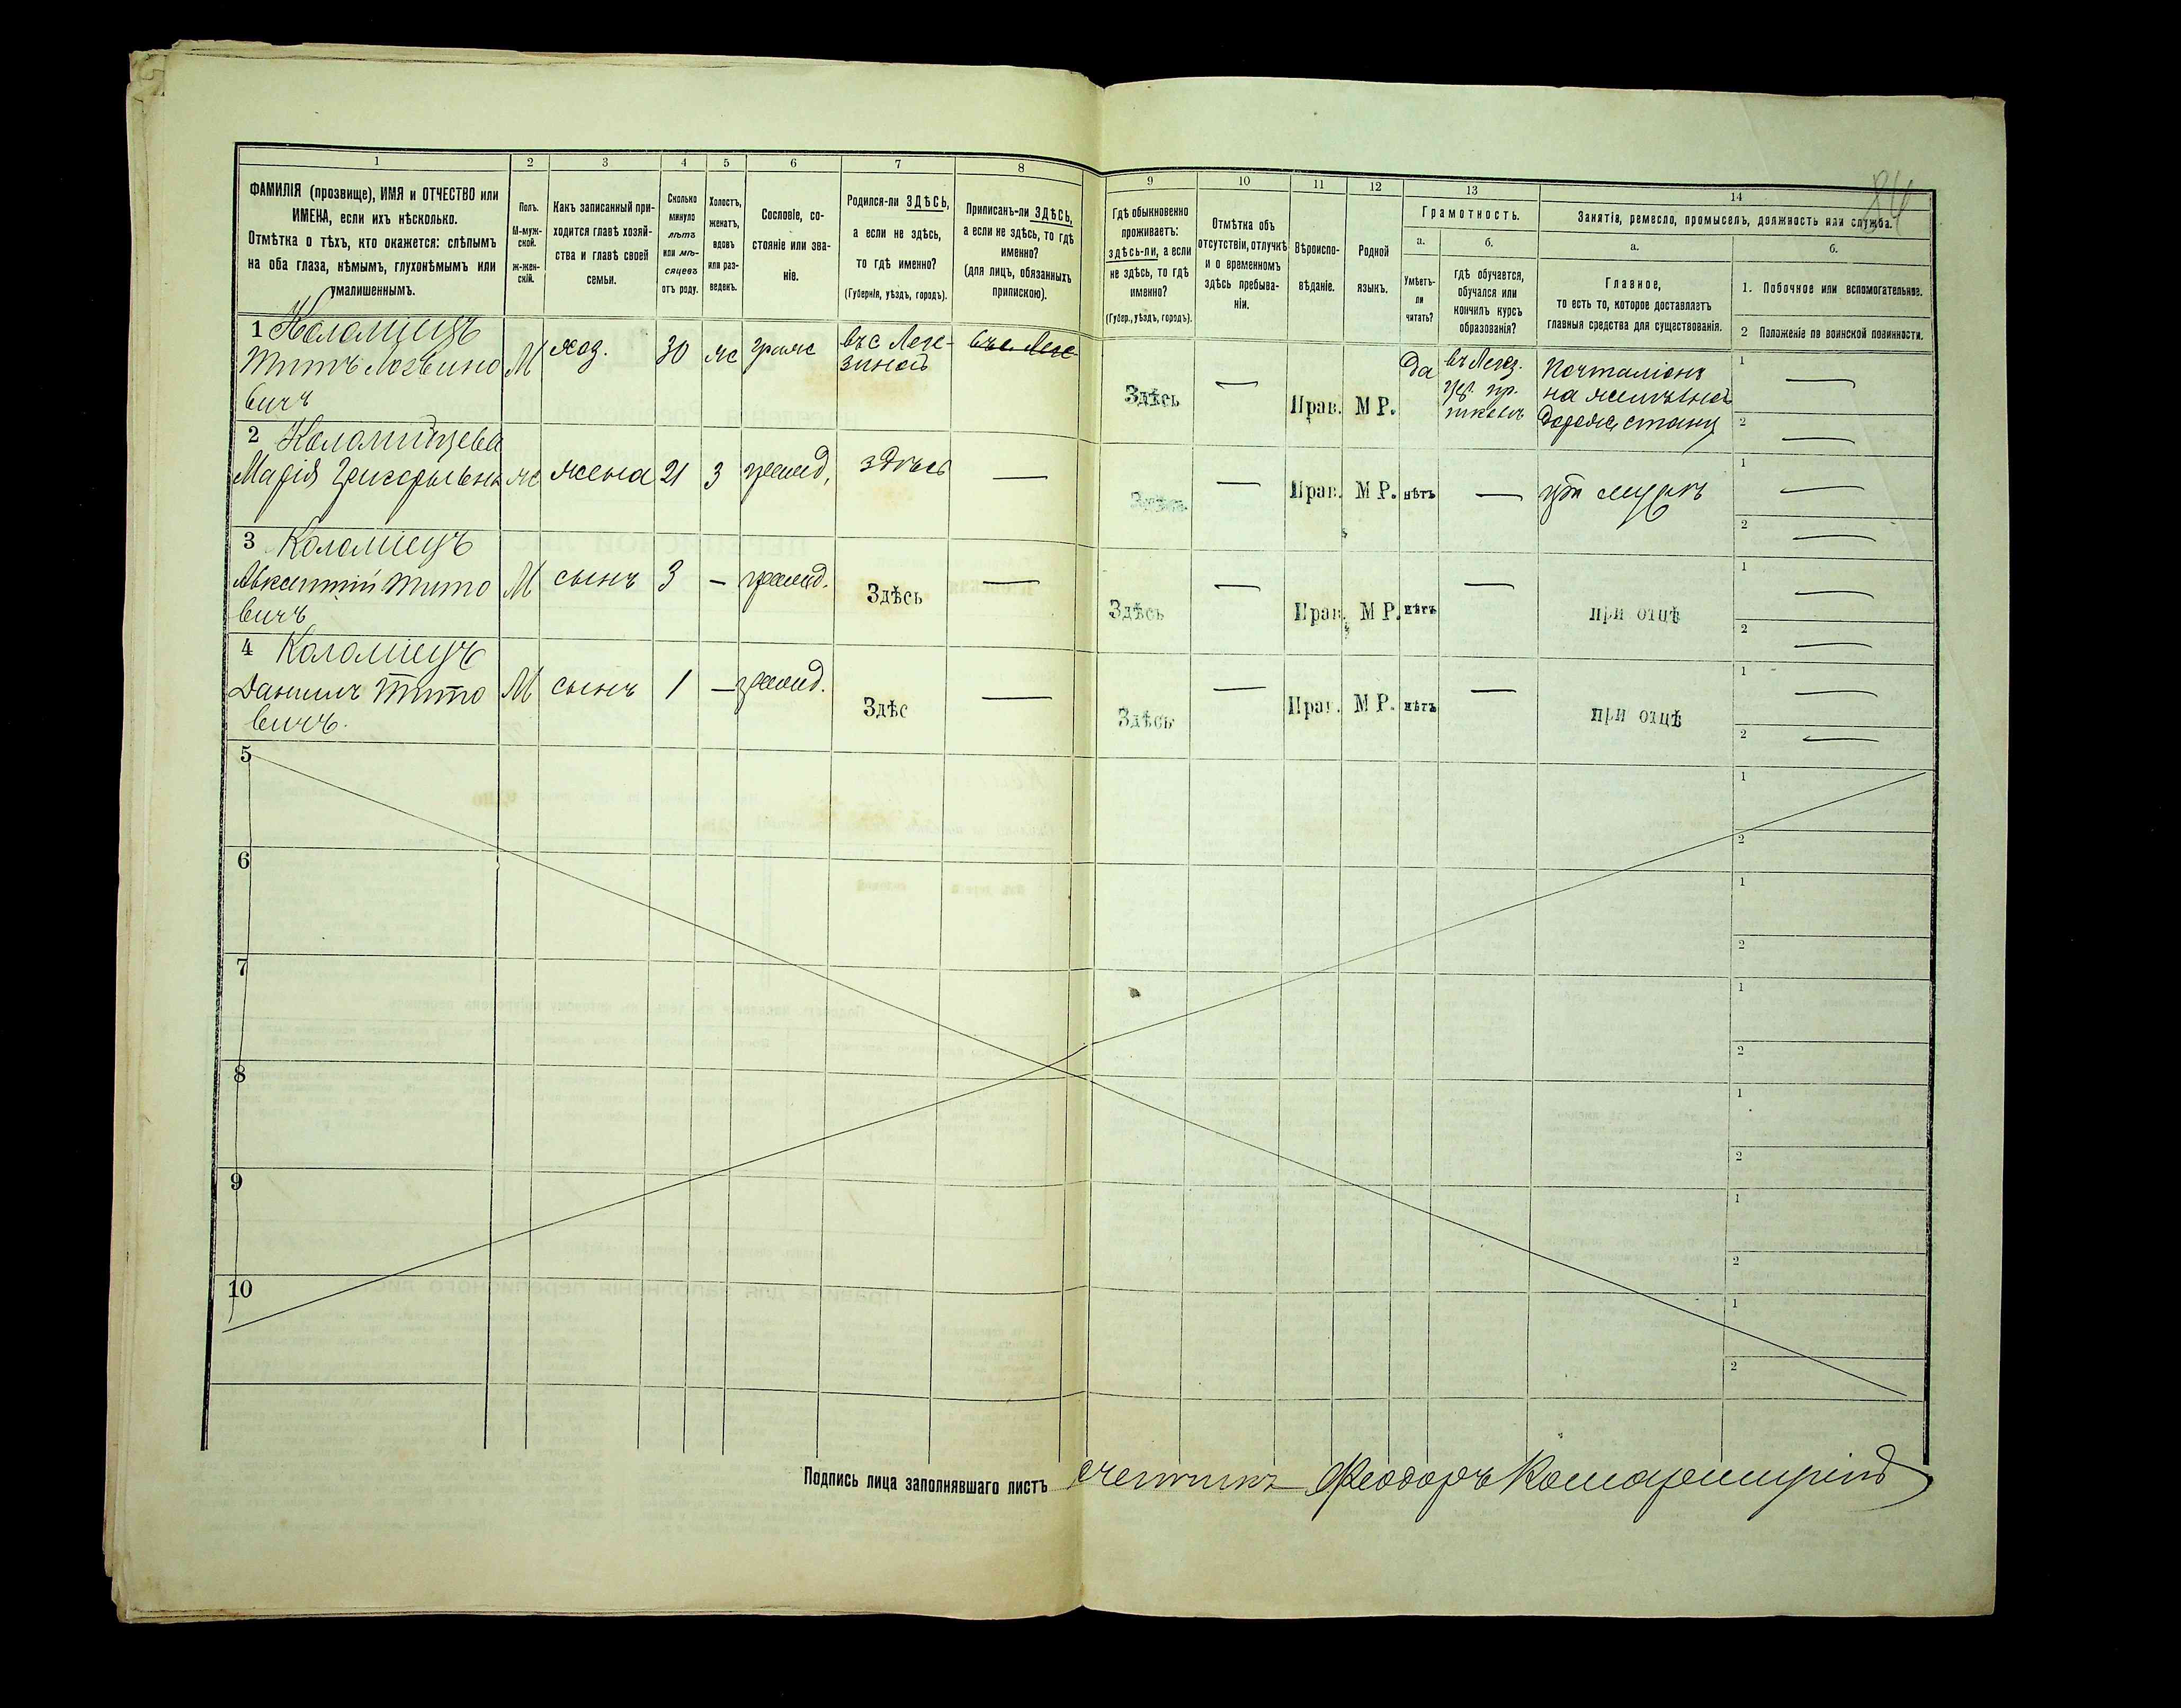 84
1 2 3 4 5 6 7 8 9 10 11 12 13 14
ФАМИЛІЯ (прозвище), ИМЯ и ОТЧЕСТВО или
ИМЕНА, если ихъ нѣсколько.
Отмѣтка о тѣхъ, кто окажется: слѣпымъ
на оба глаза, нѣмымъ, глухонѣмымъ или
умалишеннымъ.
Полъ.
М-муж-
ской.
ж-жен-
скій.
Какъ записанный при-
ходится главѣ хозяй-
ства и главѣ своей
семьи.
Сколько
минуло
лѣтъ
или мѣ-
сяцевъ
отъ роду.
Холостъ,
женатъ,
вдовъ
или раз-
веденъ.
Сословіе, со-
стояніе или зва-
ніе.
Родился-ли ЗДѢСЬ,
а если не здѣсь,
то гдѣ именно?
(Губернія, уѣздъ, городъ).
Приписанъ-ли ЗДѢСЬ,
а если не здѣсь, то гдѣ
именно?
(для лицъ, обязанныхъ
припискою).
Гдѣ обыкновенно
проживаетъ:
здѣсь-ли, а если
не здѣсь, то гдѣ
именно?
(Губер., уѣздъ, городъ).
Отмѣтка объ
отсутствіи, отлучкѣ
и о временномъ
здѣсь пребыва-
ніи.
Вѣроиспо-
вѣданіе.
Родной
языкъ.
Грамотность.
а.
Умѣетъ-
ли
читать?
б.
гдѣ обучается,
обучался или
кончилъ курсъ
образованія?
Занятія, ремесло, промыселъ, должность или служба.
а.
Главное,
то есть то, которое доставляетъ
главныя средства для существованія.
б.
1. Побочное или вспомогательное.
2 Положеніе по воинской повинности.
1 Коломіецъ
Титъ Логвино
вичъ
М
хоз.
30
ж
въ с Леге-
зиной
въ с. Леге-
Здѣсь
—
Прав.
М Р.
Да
въ Легез.
школѣ
Почталіонъ
1 —
2 —
2 Коломійцева
Марія Григорьевн
ж
жена
21
з
здѣсь
—
Здѣсь
—
Прав.
М Р.
нѣтъ
—
1 —
2 —
3 Коломіецъ
Авксентій Тито
вичъ
М
сынъ
3
—
Здѣсь
—
Здѣсь
—
Прав.
М Р.
нѣтъ
—
при отцѣ
1 —
2 —
4 Коломіецъ
Даниилъ Тито
вичъ.
М
сынъ
1
—
Здѣс
—
Здѣсь
—
Прав.
М Р.
нѣтъ
—
при отцѣ
1 —
2 —
5
1
2
6
1
2
7
1
2
8
1
2
9
1
2
10
1
2
Подпись лица заполнявшаго листъ счетчикъ Феодоръ